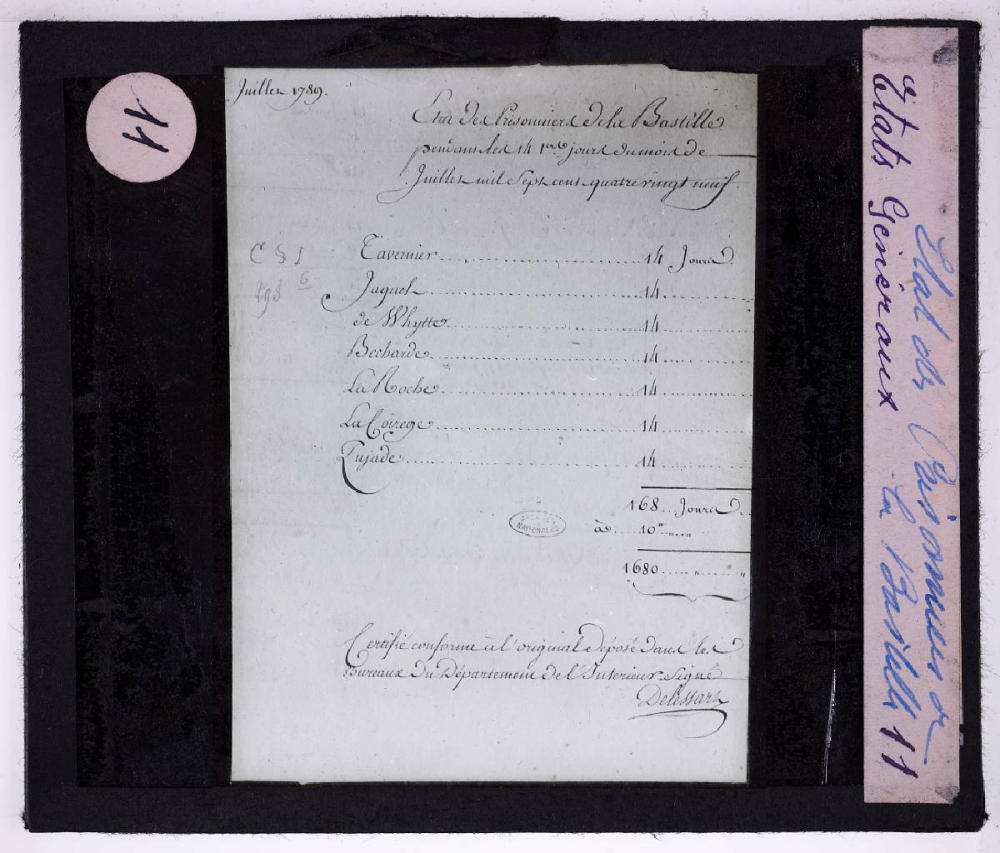 11
Juillet 1789.
Etat des Prisonniers de la Bastille
pendant les 14 1ers jours du mois de
Juillet mil sept cent quatre vingt neuf.
C § I
6
Tavernier 14 Jours
Jaquel 14
de Whytte 14
Bechade 14
La Roche 14
La Corege 14
Pujade 14
168 Jours
à 10#
1680 " "
Certifié conforme à l'original déposé dans les
Bureaux du Département de l'Interieur. Signé
Delessart
Etats Généraux 11
Etat des Prisonniers de
la Bastille